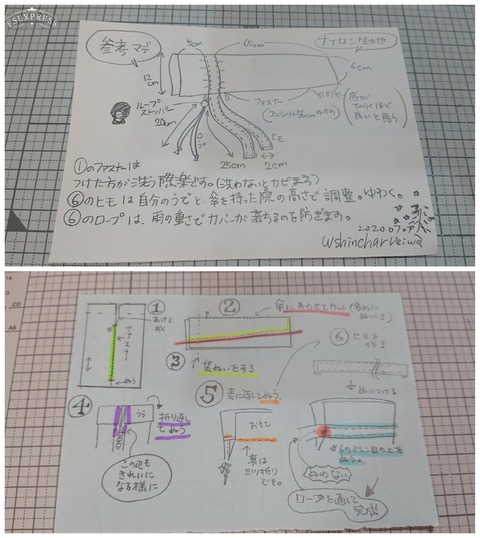 PSEXPRESS
参考マデ
4cm
65cm
ナイロン生地
12cm
6cm
ループ
ストッパー
20cm
ロープ
ファスナー
(コンシール56cmのもの)
25cm
2cm
①のファスナーは
つけた方が洗う際楽です。(洗わないとカビます)
⑥のヒモは自分のうでと、傘を持った際の高さで調整。ゆわく。
⑥のロープは、雨の重さでカバーが落ちるのを防ぎます。
2020.07.
①
②
あけて
おく
ファスナー
ぬう
③
袋ぬいをする
④
うら
折り返し
てぬう
この辺も
きれいに
なる様に
⑤
表に返してぬう。
おもて
裏は
三ツ折り
でも。
⑥
ヒモを
作る
ぬいつける
ぬわない
ロープを通して
完成!